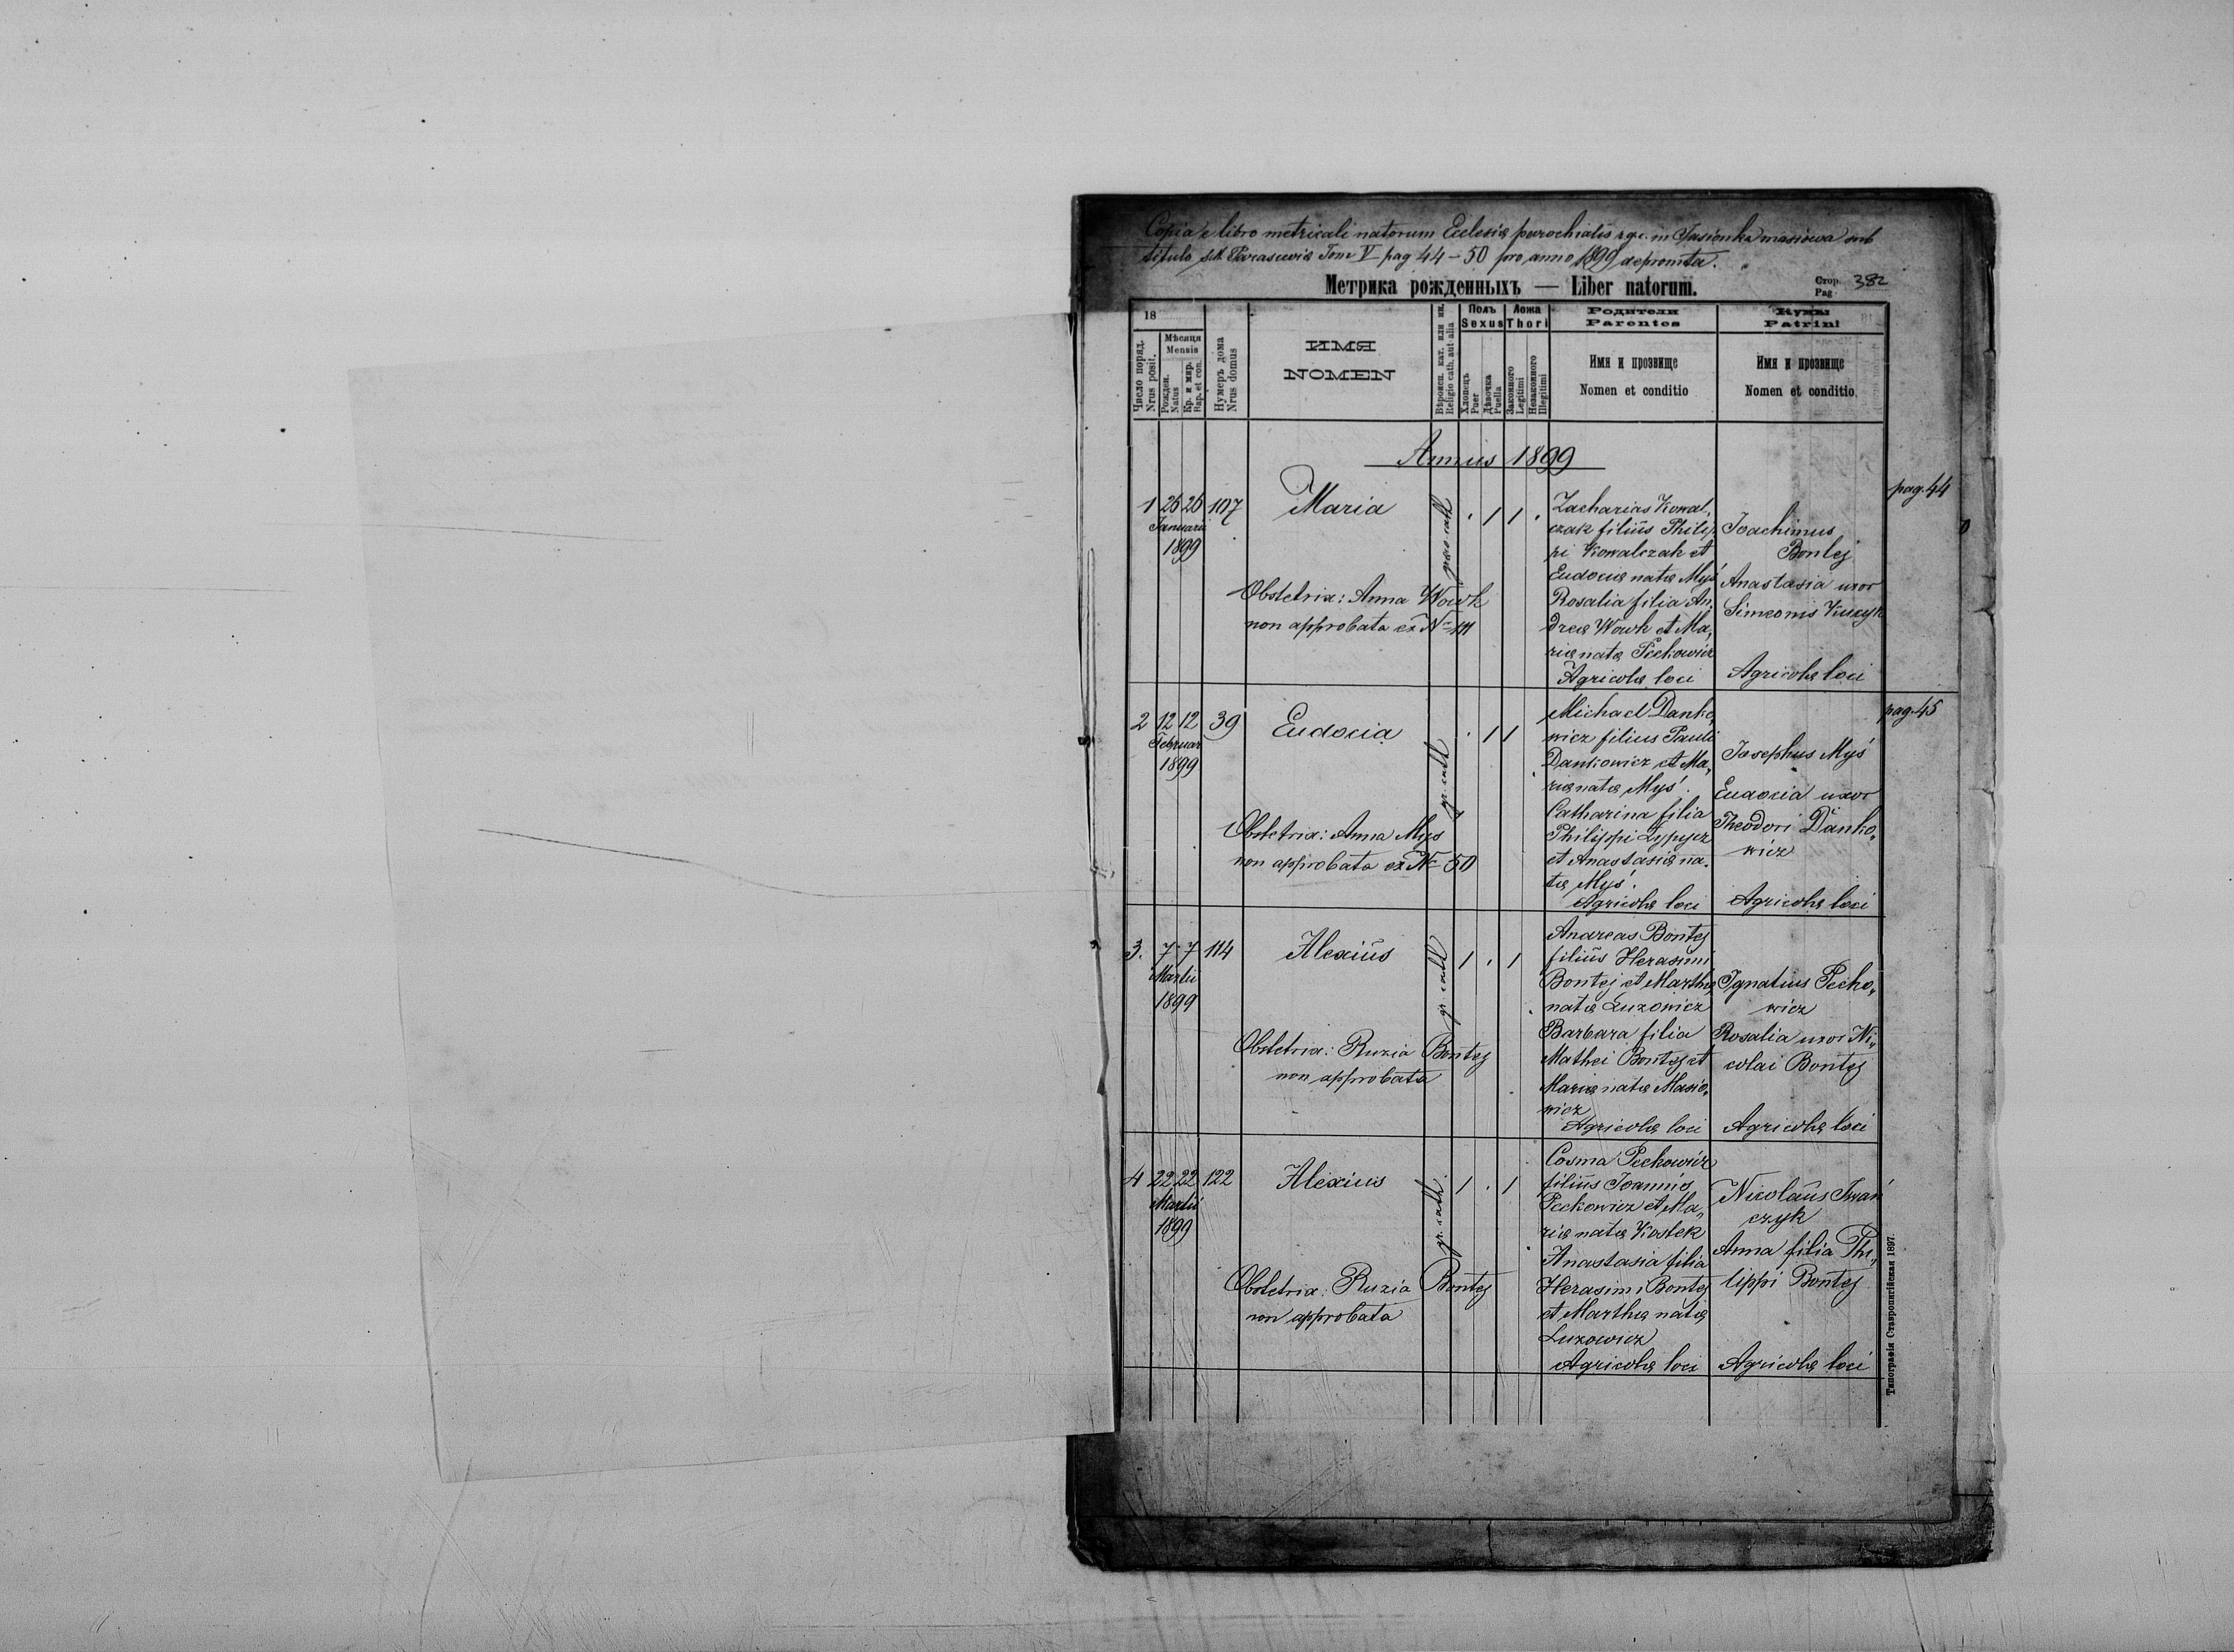 Copia e libro metricali natorum Eclesiæ parochialis r.g.c. in Jasionka masiowa sub
titulo sct. Parascevie Tom V pag 44 - 50 pro anno 1899 depromta.
Метрика рожденныхъ — Liber natorum.
Стор.
Pag 382
18
Число поряд.
Nrus posit.
Мѣсяця
Mensis
Рожден.
Natus
Кр. и мир.
Bap. et con.
Нумеръ дома
Nrus domus
ИМЯ
NOMEN
Вѣроисп. кат. или ин.
Religio cath. aut alia
Полъ
Sexus
Хлопецъ
Puer
Дѣвочка
Puella
Ложа
Thori
Законного
Legitimi
Незаконного
Illegitimi
Родители
Parentes
Имя и прозвище
Nomen et conditio
Кумы
Patrini
Имя и прозвище
Nomen et conditio
Annus 1899
pag. 44
1 26 26 107
Januarii
1899
Maria
gr. cath
Obstetrix: Anna Wowk
non approbata ex No 111
Zacharias Kowal,
czak filius Philip,
pi Kowalczak et
Eudociæ natæ Myś
Rosalia filia An,
dreæ Wowk et Ma,
riæ natæ Peckowicz
Agricolæ loci
Joachimus
Bontej
Anastasia uxor
Simeonis Kuszyk
Agricolæ loci
pag. 45
2 12 12 39
Februar
1899
Eudocia
gr. cath
Obstetrix: Anna Mys
non approbata ex No 50
Michael Danko,
wicz filius Pauli
Dankowicz et Ma,
riæ natæ Myś.
Catharina filia
Philippi Zypycz
et Anastasiæ na,
tæ Myś.
Agricolæ loci
Josephus Myś
Eudocia uxor
Theodori Danko,
wicz
Agricolæ loci
3. 7 7 114
Martii
1899
Alexius
gr. cath
Obstetrix: Ruzia Bontej
non approbata
Andreas Bontej
filius Herasimi
Bontej et Marthæ
natæ Luzowicz
Barbara filia
Mathei Bontej et
Mariæ natæ Masio,
wicz
Agricolæ loci
Ignatius Pecko,
wicz
Rosalia uxor Ni,
colai Bontej
Agricolæ loci
4 22 22 122
Martii
1899
Alexius
gr. cath.
Obstetrix: Ruzia Bontej
non approbata
Cosma Peckowicz
filius Joannis
Peckowicz et Ma,
riæ natæ Kostek
Anastasia filia
Herasimi Bontej
et Marthæ natæ
Luzowicz
Agricolæ loci
Nicolaus Iwań
czyk
Anna filia Phi,
lippi Bontej
Agricolæ loci
Типографія Ставропигійская 1897.